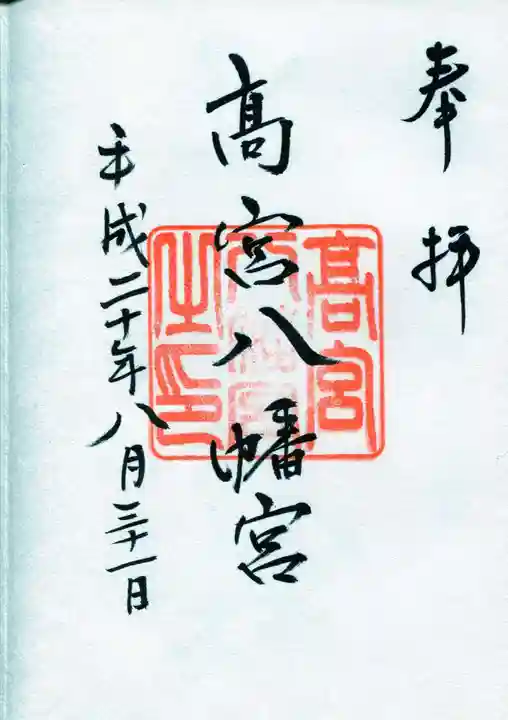 奉拝
髙宮八幡宮
平成二十年八月三十一日
髙宮
之印